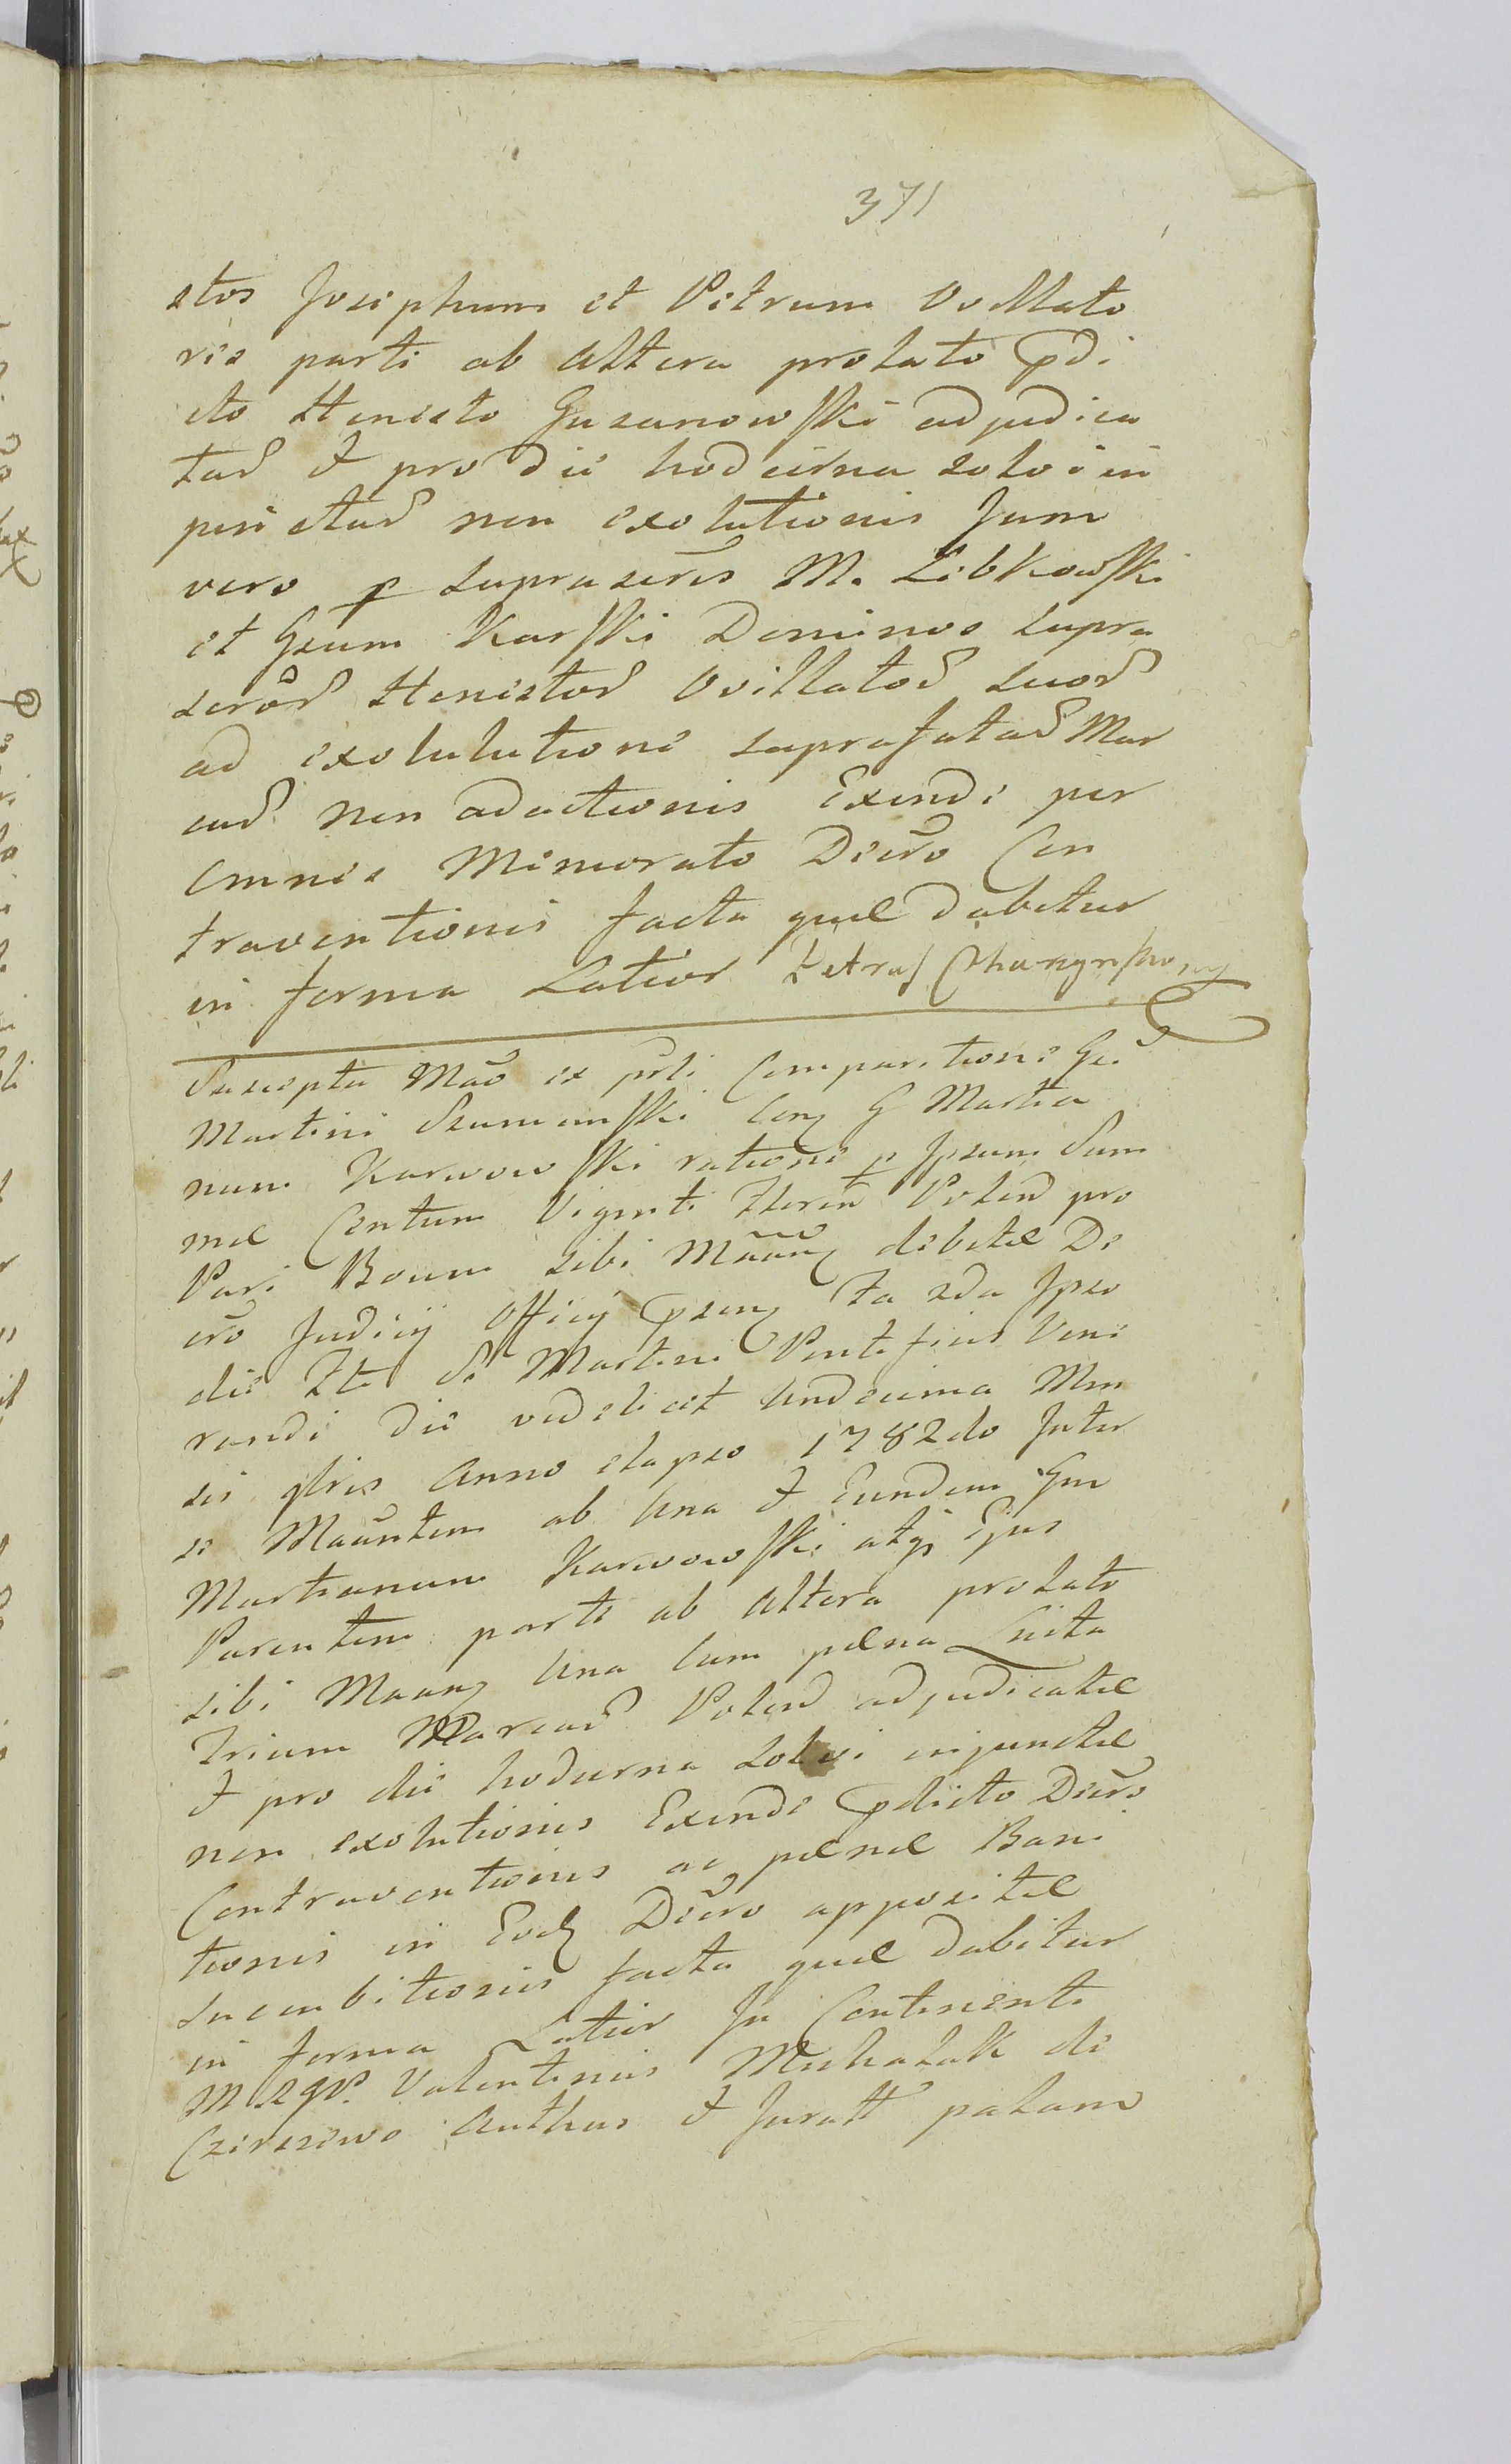 371
stos Josephum et Petrum Ovillato
res parte ab Altera prolato pdi
cto Honesto Guzanowski adjudica
tar̃ et pro die hodierna solvi in
pen ctar̃ non exolutionis Jam
vero p suprascrĩs M. Libkowski
et Gsum Karski Dominos supra
scrõr̃ Honestor̃ Ovillator̃ suor̃
ad exolulutione suprafatar̃ Mar
car̃ non adactionis Exinde per
Omnes Memorato Decr̃o Con
traventionis facta quæ dabitur
in forma Latior
Suscepta Mãõ ex pr̃li Comparitione Gsi
Martini Szumowski Conz G Martia
num Karwowski ratione p Ipsum Sum
mæ Centum Viginti Floren̄ Polon̄ pro
Pari Boum sibi Mãanz debitæ De
cr̃o Judicij Officij psenz Fa 2da Ipso
die Fti Si Martini Pontificis Vene
randi die videlicet Undecima Men
sis 9bris Anno elapso 1782do Inter
se Maãntem ab Una et Eundem Gm
Martianum Karwowski atqz Ejus
Parentem parte ab Altera prolato
sibi Maanz Una Cum pæna Luita
Trium Marcar̃ Polon̄ adjudicatæ
et pro die hodierna solvi injunctæ
non exolutionis Exinde pdicto Decr̃o
Contraventionis ac pænæ Bani
tionis in Eodz Decr̃o appositæ
Sucubitionis facta quæ dabitur
in forma Latior In Continenti
M 2 gr. Valentinus Michalak de
Czerszewo Authus et Juratt palam